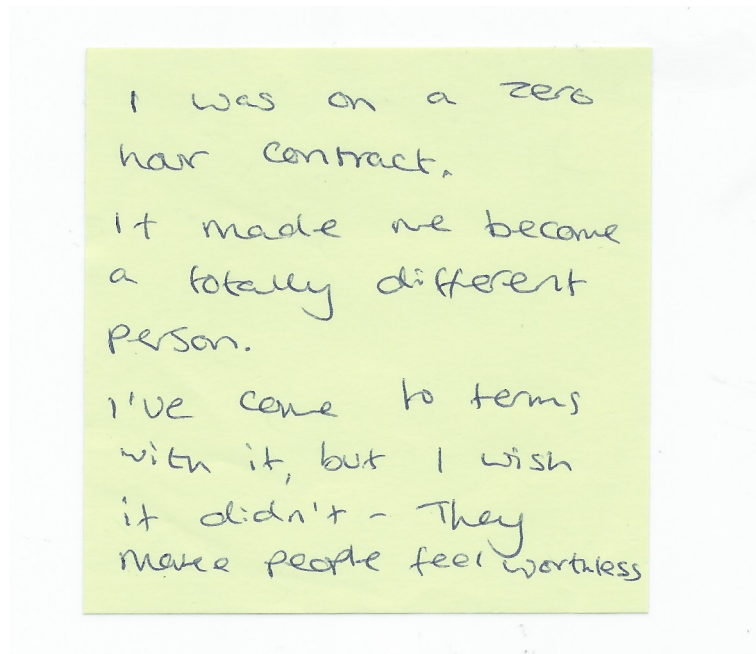 I was on a zero
hour contract.
It made me become
a totally different
person.
I've come to terms
with it, but I wish
it didn't - They
make people feel worthless